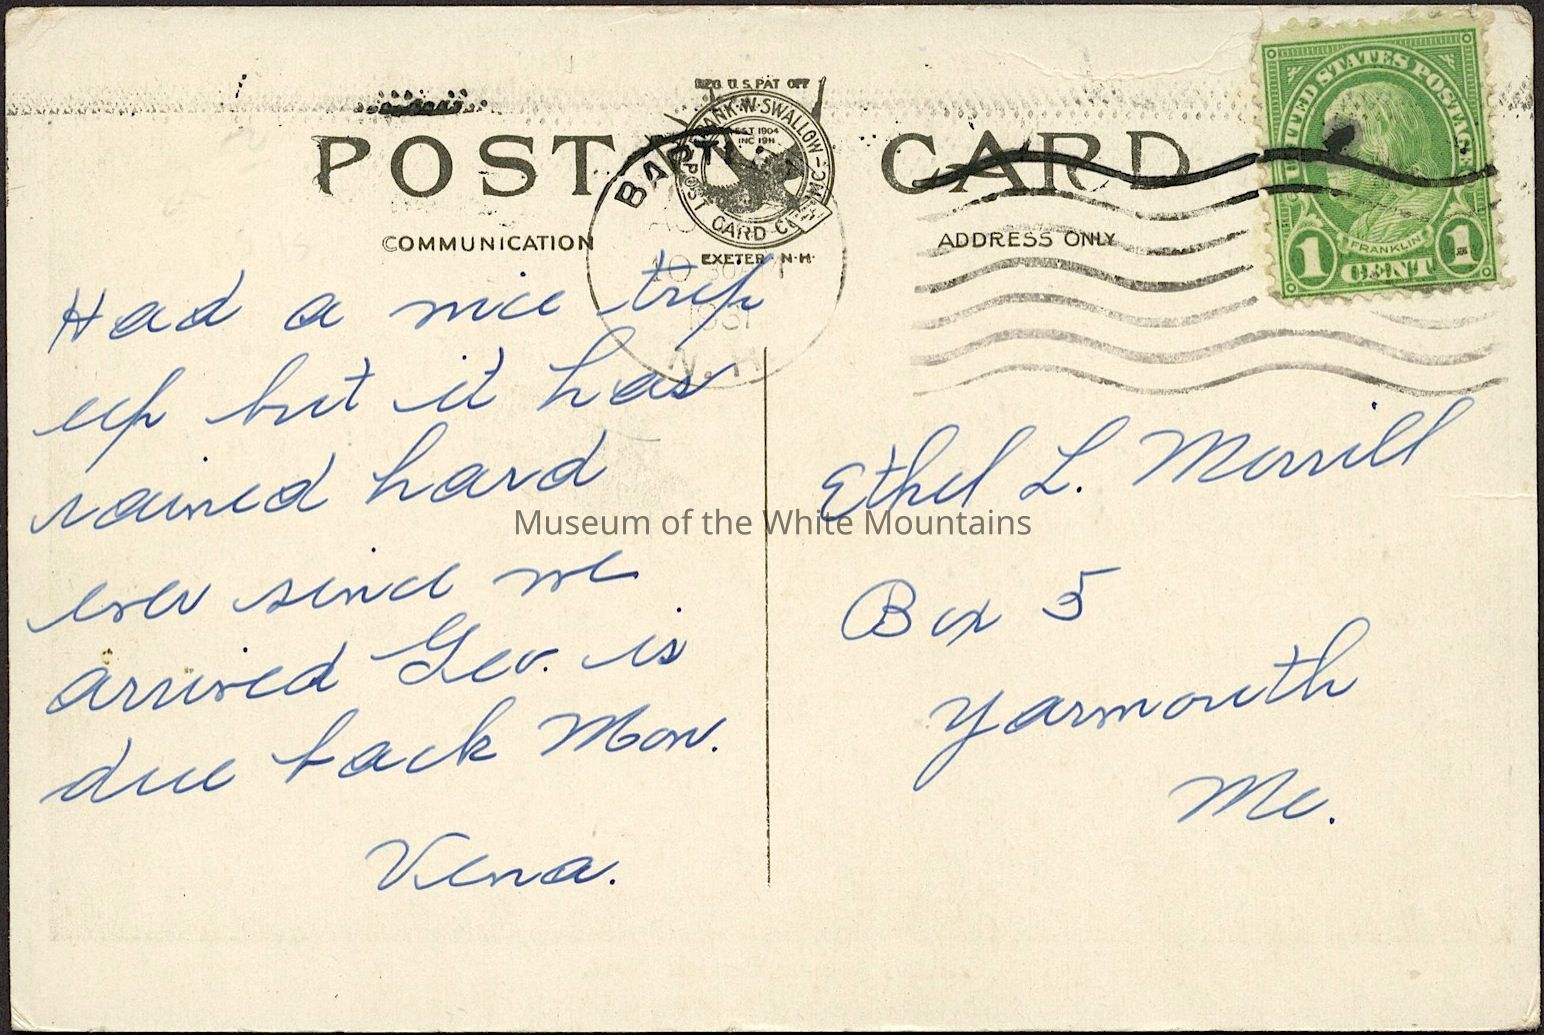 REG. U.S. PAT OFF
POST CARD
FRANK W. SWALLOW POST CARD CO. INC.
EST 1904
INC 1911
EXETER, N.H.
COMMUNICATION
ADDRESS ONLY
UNITED STATES POSTAGE
FRANKLIN
1 CENT 1
BARTL
AU
10 30 AM
1931
N.H.
Had a nice trip
up but it has
rained hard
ever since we
arrived Geo. is
due back Mon.
Vena.
Ethel L. Merrill
Box 5
Yarmouth
Me.
Museum of the White Mountains